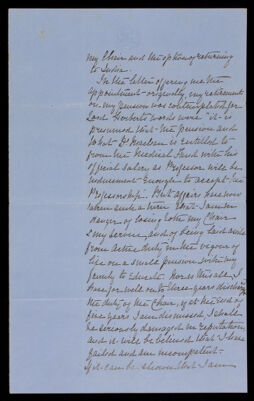 my Chair and the option of returning
to India.
In the letter offering me the
appointment - originally, my retirement
on my pension was contemplated for
Lord Herberts words were "it is
presumed that the pension and
what Dr Maclean is entitled to
from the Medical Fund with the
official salary as Professor will be
inducement enough to accept the
Professorship". But affairs have now
taken such a turn that I am in
danger of losing both my Chair
& my service, and of being laid aside
from active duty in the vigour of
life on a small pension with my
family to educate. Nor is this all. I
have for well on to three years discharged
the duty of the Chair, if at the end of
five years I am dismissed, I shall
be seriously damaged in reputation,
and it will be believed that I have
failed and am incompetent.
If it can be shown that I am